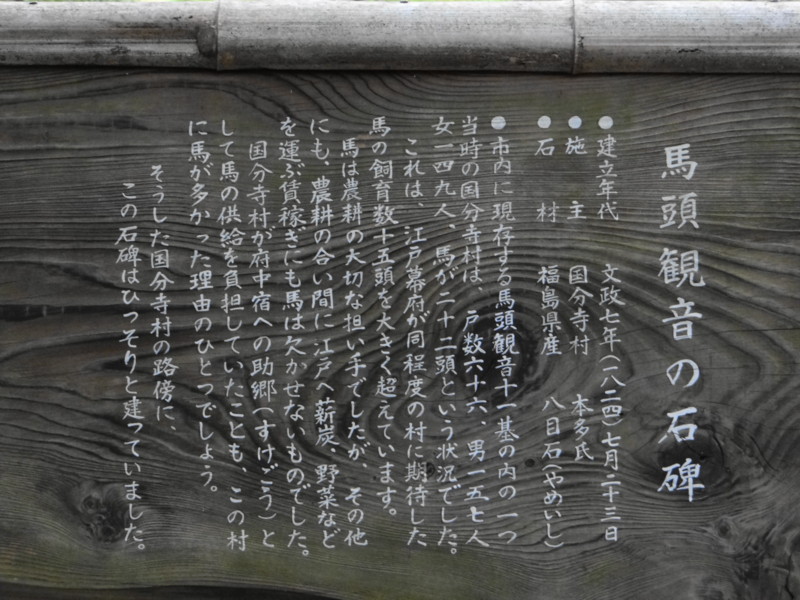 馬頭観音の石碑
●建立年代　文政七年(一八二四)七月二十三日
●施　主　国分寺村　本多氏
●石　材　福島県産　八目石(やめいし)
●市内に現存する馬頭観音十一基の内の一つ
当時の国分寺村は、戸数六十六、男一五七人
女一四九人、馬が二十二頭という状況でした。
これは、江戸幕府が同程度の村に期待した
馬の飼育数十五頭を大きく超えています。
馬は農耕の大切な担い手でしたが、その他
にも、農耕の合い間に江戸へ薪炭、野菜など
を運ぶ賃稼ぎにも馬は欠かせないものでした。
国分寺村が府中宿への助郷(すけごう)と
して馬の供給を負担していたことも、この村
に馬が多かった理由のひとつでしょう。
そうした国分寺村の路傍に、
この石碑はひっそりと建っていました。